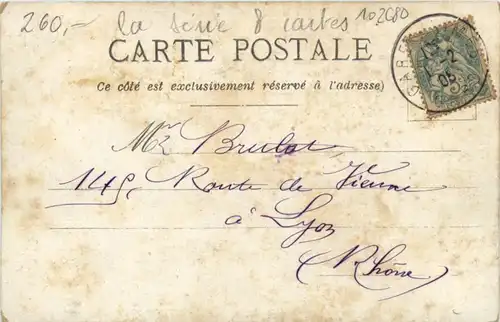 260,- la série 8 cartes 102680
CARTE POSTALE
(Ce côté est exclusivement réservé à l'adresse)
Mr Brulat
149, Route de Vienne
à Lyon
(Rhône)